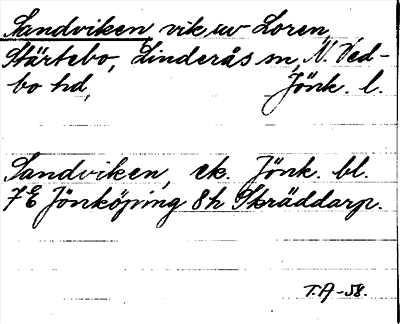 Sandviken vik av Loren,
Stärtebo, Linderås sn, N. Ved-
bo hd, Jönk. l.
Sandviken, ek. Jönk. bl.
7E Jönköping 8h Skräddarp.
T.A-58.